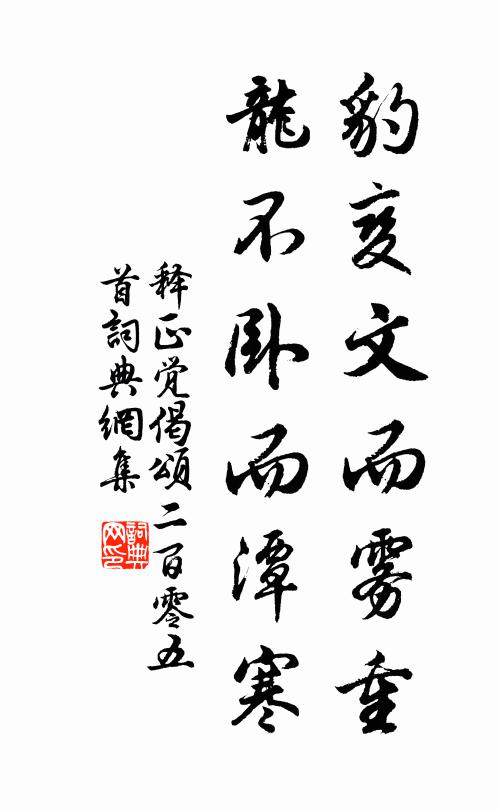 豹变文而雾重
龍不卧而潭寒
释正觉偈頌二百零五
首詞典網集
詞典网印